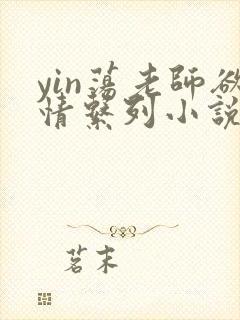 yin蕩老師欲
情繫列小說
茗末